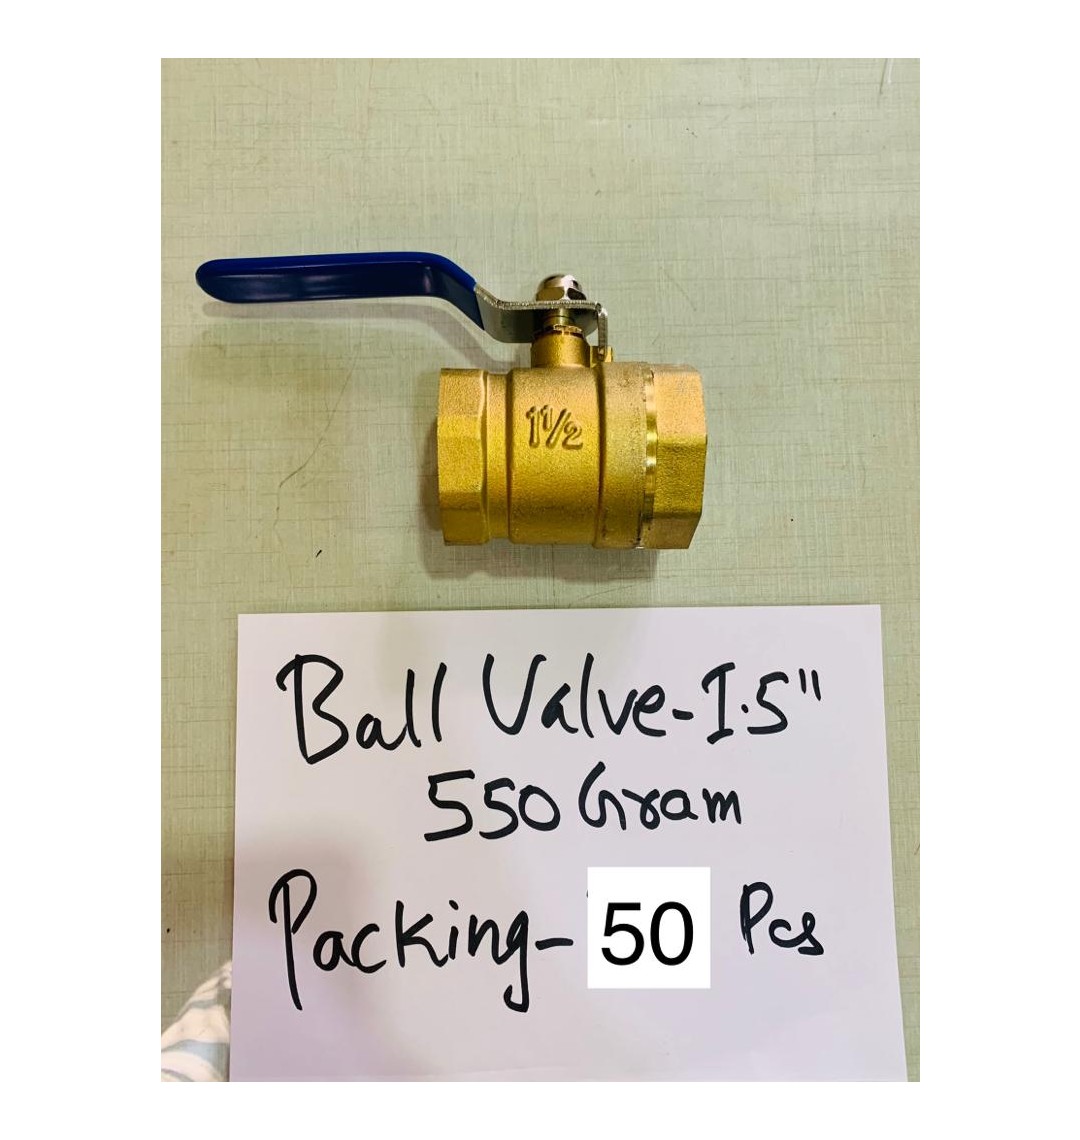 1 1/2
Ball Valve-1.5"
550 Gram
Packing- 50 Pcs